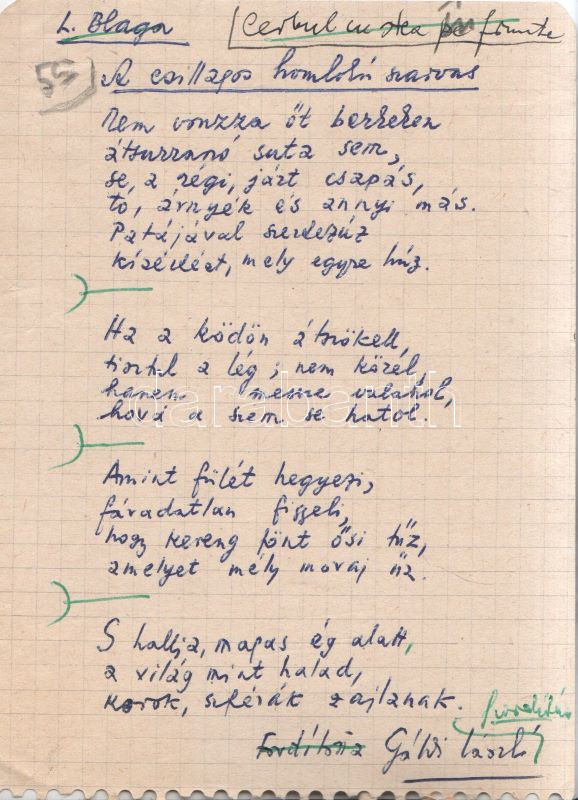 L. Blaga
Cerbul cu stea în frunte
55
A csillagos homlokú szarvas
Nem vonzza őt berkeken
átsurranó suta sem,
se, a régi, járt csapás,
tó, árnyék és annyi más.
Patájával szerdezúz
kísértést, mely egyre húz.
Ha a ködön átszökell,
tisztul a lég; nem közel,
hanem messze valahol,
hová a szem se hatol.
Amint fülét hegyezi,
fáradatlan figyeli,
hogy kereng fönt ősi tűz,
amelyet mély moraj űz.
S hallja, magas ég alatt,
a világ mint halad,
korok, szférák zajlanak.
Fordította Gáldi László
fordítás
darabanth